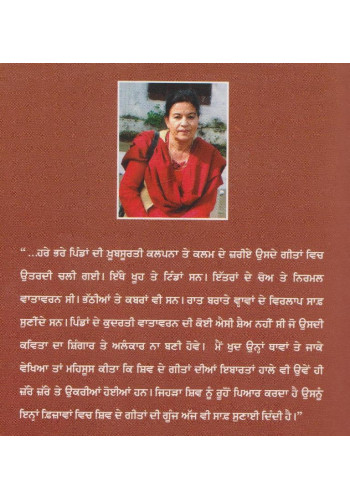 “ ...ਹਰੇ ਭਰੇ ਪਿੰਡਾਂ ਦੀ ਖ਼ੂਬਸੂਰਤੀ ਕਲਪਨਾ ਤੇ ਕਲਮ ਦੇ ਜ਼ਰੀਏ ਉਸਦੇ ਗੀਤਾਂ ਵਿਚ
ਉਤਰਦੀ ਚਲੀ ਗਈ। ਇੱਥੇ ਖੂਹ ਤੇ ਟਿੰਡਾਂ ਸਨ। ਇੱਤਰਾਂ ਦੇ ਚੋਅ ਤੇ ਨਿਰਮਲ
ਵਾਤਾਵਰਨ ਸੀ। ਭੱਠੀਆਂ ਤੇ ਕਬਰਾਂ ਵੀ ਸਨ। ਰਾਤ ਬਰਾਤੇ ਢ੍ਵਾਵਾਂ ਦੇ ਵਿਰਲਾਪ ਸਾਫ਼
ਸੁਣੀਂਦੇ ਸਨ। ਪਿੰਡਾਂ ਦੇ ਕੁਦਰਤੀ ਵਾਤਾਵਰਨ ਦੀ ਕੋਈ ਐਸੀ ਸ਼ੈਅ ਨਹੀਂ ਸੀ ਜੋ ਉਸਦੀ
ਕਵਿਤਾ ਦਾ ਸ਼ਿੰਗਾਰ ਤੇ ਅਲੰਕਾਰ ਨਾ ਬਣੀ ਹੋਵੇ। ਮੈਂ ਖੁਦ ਉਨ੍ਹਾਂ ਥਾਵਾਂ ਤੇ ਜਾਕੇ
ਵੇਖਿਆ ਤਾਂ ਮਹਿਸੂਸ ਕੀਤਾ ਕਿ ਸ਼ਿਵ ਦੇ ਗੀਤਾਂ ਦੀਆਂ ਇਬਾਰਤਾਂ ਹਾਲੇ ਵੀ ਉਵੇਂ ਹੀ
ਜ਼ੱਰੇ ਜ਼ੱਰੇ ਤੇ ਉਕਰੀਆਂ ਹੋਈਆਂ ਹਨ। ਜਿਹੜਾ ਸ਼ਿਵ ਨੂੰ ਰੂਹੋਂ ਪਿਆਰ ਕਰਦਾ ਹੈ ਉਸਨੂੰ
ਇਨ੍ਹਾਂ ਫ਼ਿਜ਼ਾਵਾਂ ਵਿਚ ਸ਼ਿਵ ਦੇ ਗੀਤਾਂ ਦੀ ਗੂੰਜ ਅੱਜ ਵੀ ਸਾਫ਼ ਸੁਣਾਈ ਦਿੰਦੀ ਹੈ।”